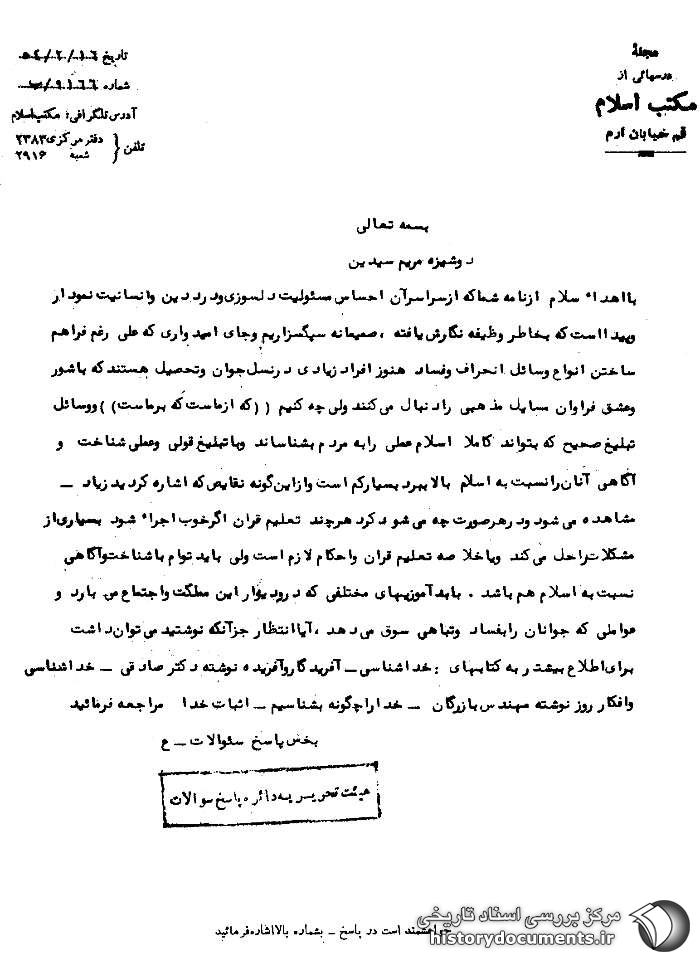 مجلهٔ
درسهائی از
مکتب اسلام
قم خیابان ارم
تاریخ ۵۴/۲/۱۶
شماره ۹۱۶۶/
آدرس تلگرافی: مکتب اسلام
تلفن { دفتر مرکزی ۲۳۸۳
شعبه ۲۹۱۶
بسمه تعالی
دوشیزه مریم سیدین
بااهداء سلام ازنامه شماکه ازسراسرآن احساس مسئولیت دلسوزی ودرد دین وانسانیت نمودار
وپیدااست که بخاطر وظیفه نگارش یافته ، صمیمانه سپگسزاریم وجای امیدواری که علی رغم فراهم
ساختن انواع وسائل انحراف وفساد هنوز افراد زیادی درنسل جوان وتحصیل هستندکه باشور
وعشق فراوان مسایل مذهبی رادنبال می‌کنند ولی چه کنیم ((که ازماست که برماست)) ووسائل
تبلیغ صحیح که بتواند کاملا اسلام عملی رابه مردم بشناساند وباتبلیغ قولی وعملی شناخت و
آگاهی آنان رانسبت به اسلام بالاببرد بسیارکم است وازاین‌گونه نقایص که اشاره کردید زیاد ــ
مشاهده می شود ودرهرصورت چه می شودکرد هرچند تعلیم قران اگرخوب اجراء شود بسیاری‌از
مشکلات راحل می‌کند وباخلاصه تعلیم قران واحکام لازم است ولی باید توام باشناخت‌وآگاهی
نسبت به اسلام هم باشد . بابدآموزیهای مختلفی که درودیوار این مملکت واجتماع می بارد و
عواملی که جوانان رابفساد وتباهی سوق می‌دهد ،آیاانتظار جزآنکه نوشتید می‌توان‌داشت
برای‌اطلاع بیشتر به کتابهای : خداشناسی ــ آفریدگاروآفریده نوشته دکتر صادقی ــ خداشناسی
وافکار روز نوشته مهندس بازرگان ــ خداراچگونه بشناسیم ــ اثبات خدا مراجعه فرمائید
بخش پاسخ سئوالات ــ ع
هیئت تحریریه دائره پاسخ سوالات
خواهشمند است در پاسخ ــ بشماره بالااشاره‌فرمائید
مرکز بررسی اسناد تاریخی
historydocuments.ir